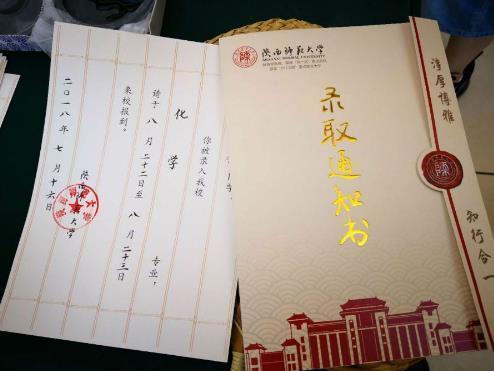 你被录入我校
化学
专业，
请于八月二十二日至八月二十三日
来校报到。
陕西师范大学
二〇一八年七月十六日
陕西师范大学
SHAANXI NORMAL UNIVERSITY
录取通知书
淳厚博雅
知行合一